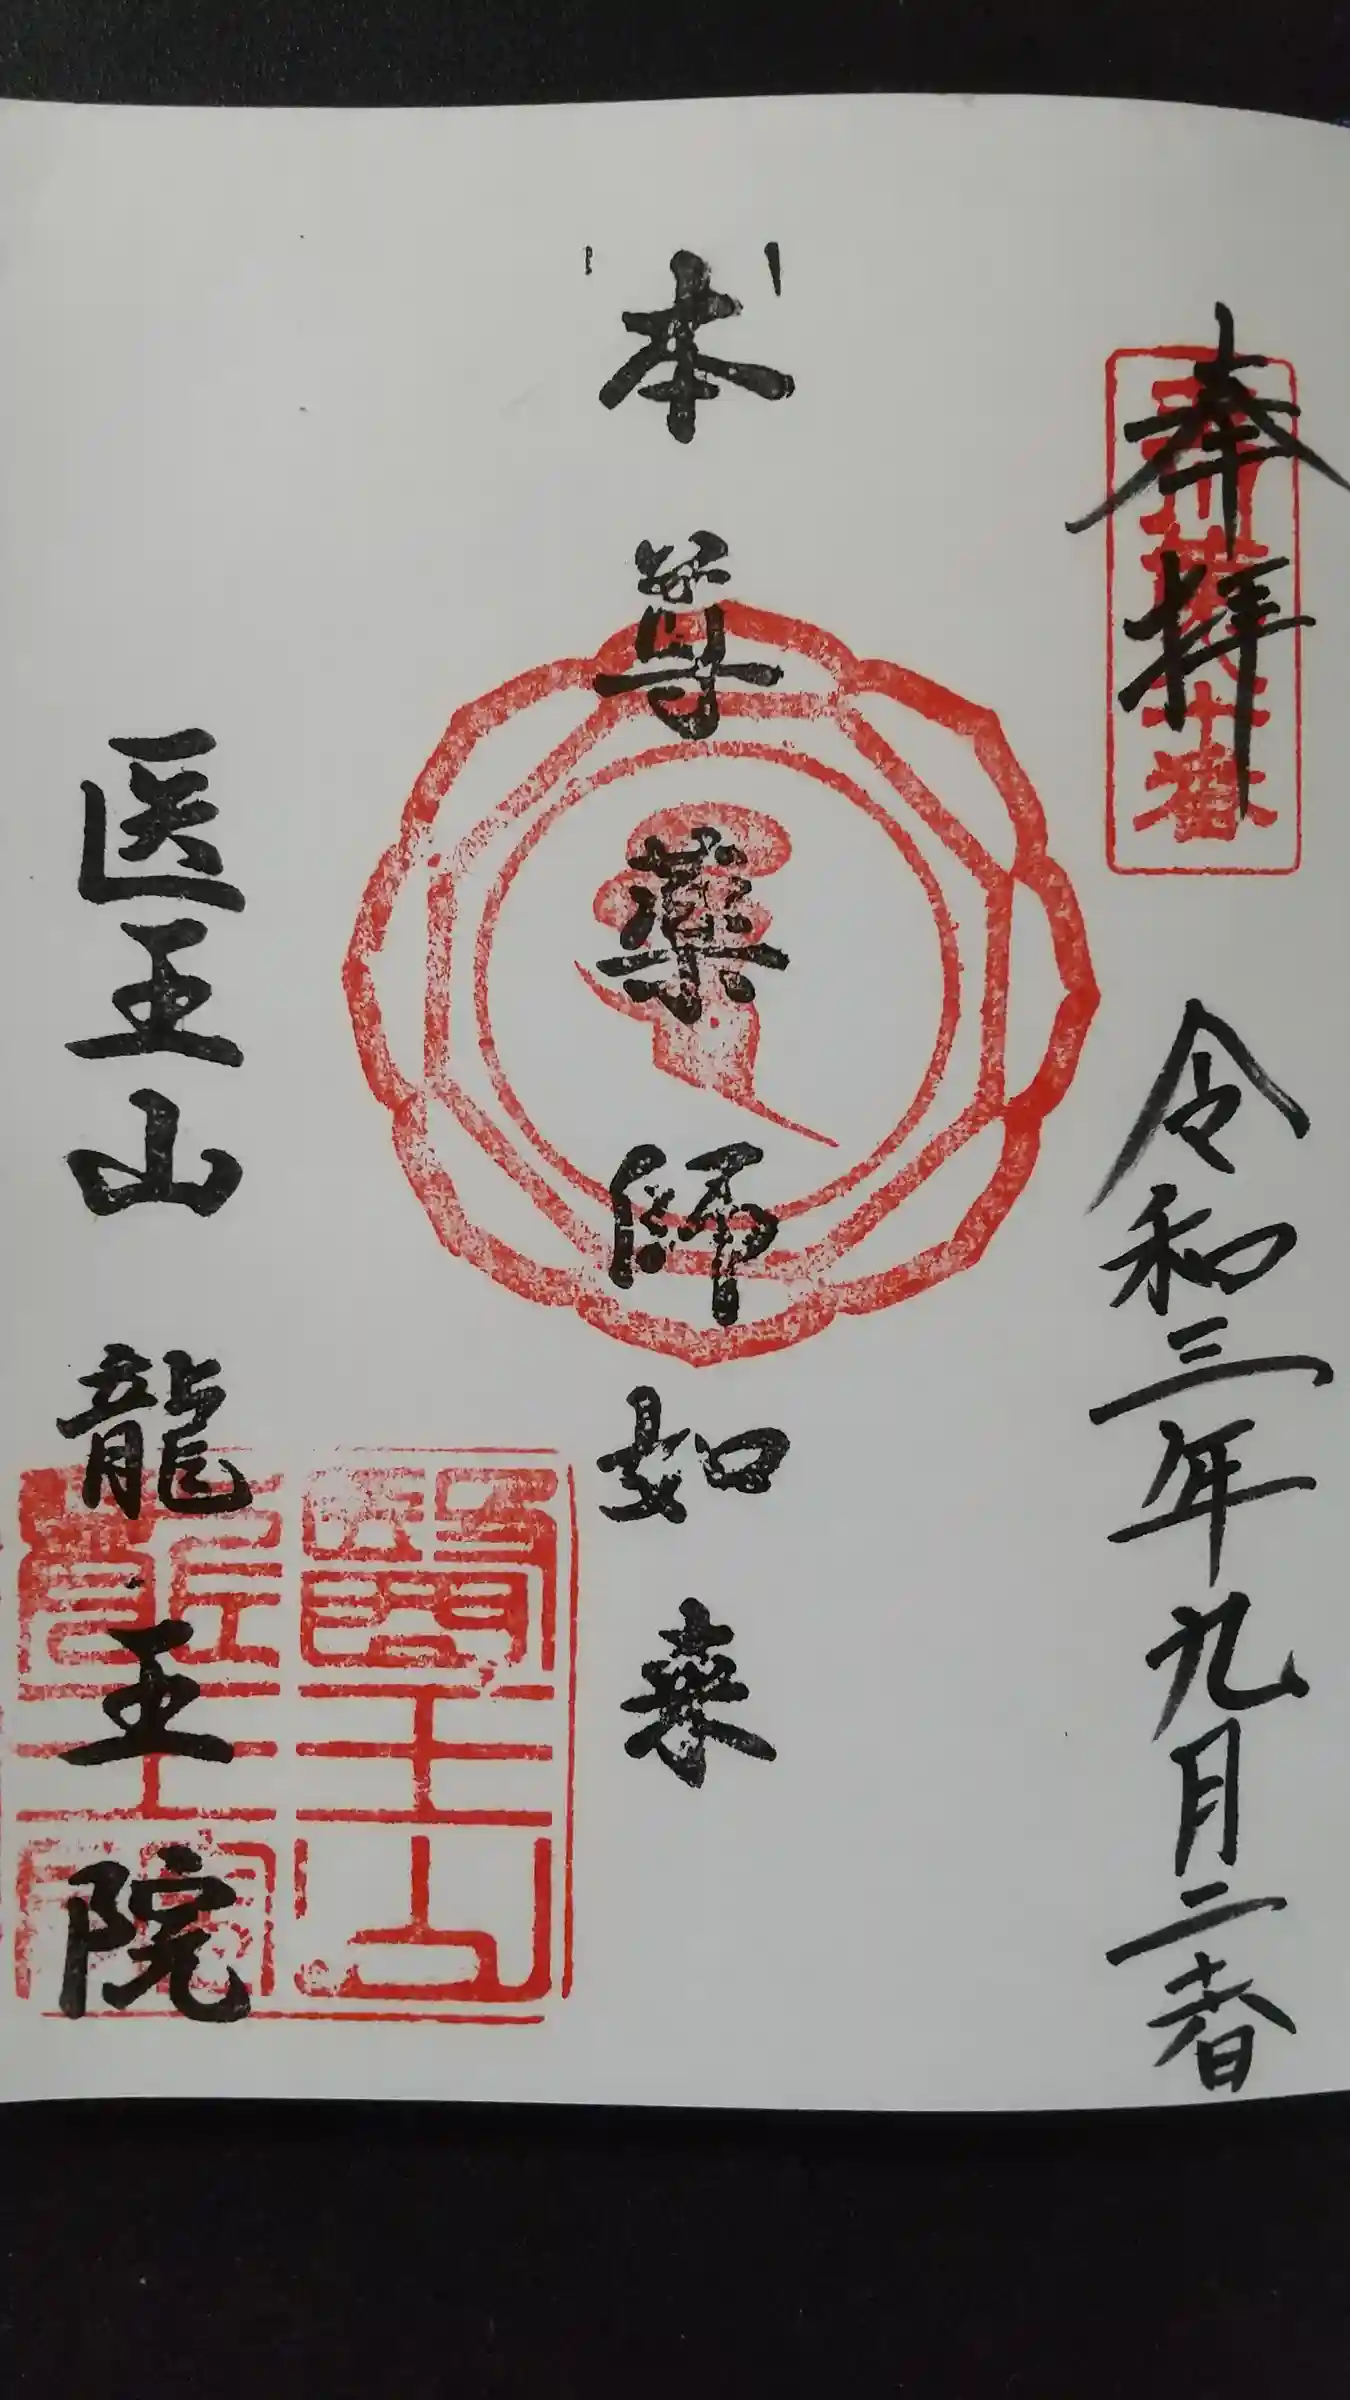 奉拝
令和三年九月二十六日
本尊薬師如来
医王山 龍王院
醫王山
龍王院